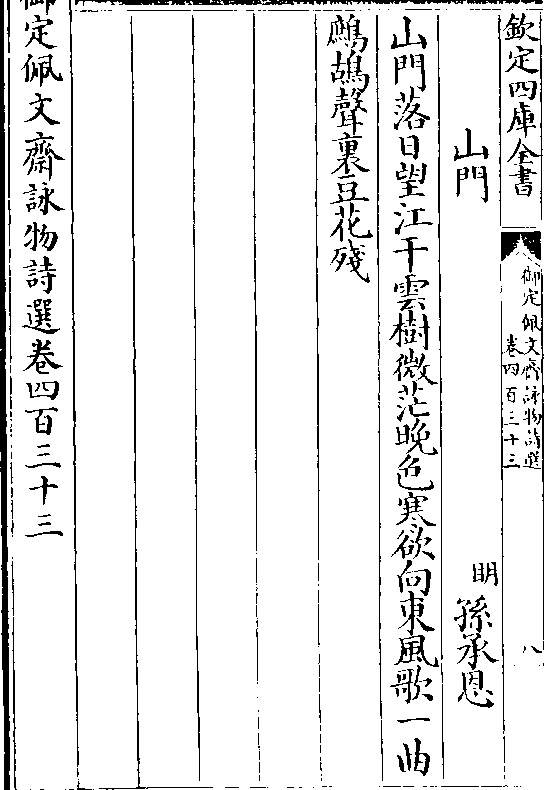 欽定四庫全書
御定佩文齋詠物詩選
卷四百三十三
八
山門
明
孫承恩
山門落日望江干雲樹微茫晚色寒欲向東風歌一曲
鷓鴣聲裏豆花殘
御定佩文齋詠物詩選卷四百三十三